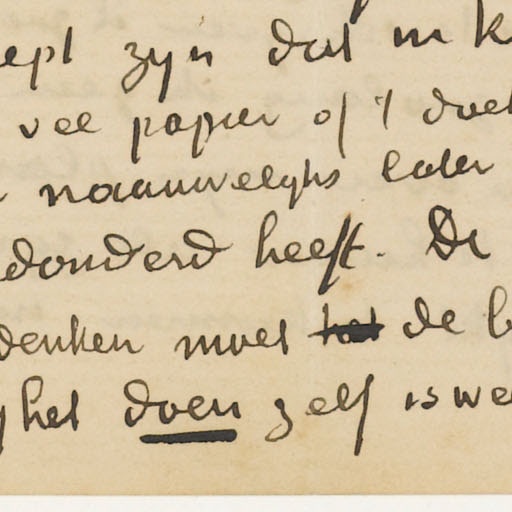 ept zyn dat in k
vel papier of 't doek
naauwelyks later
donderd heeft. De
denken moet het de b
y het doen zelf is we